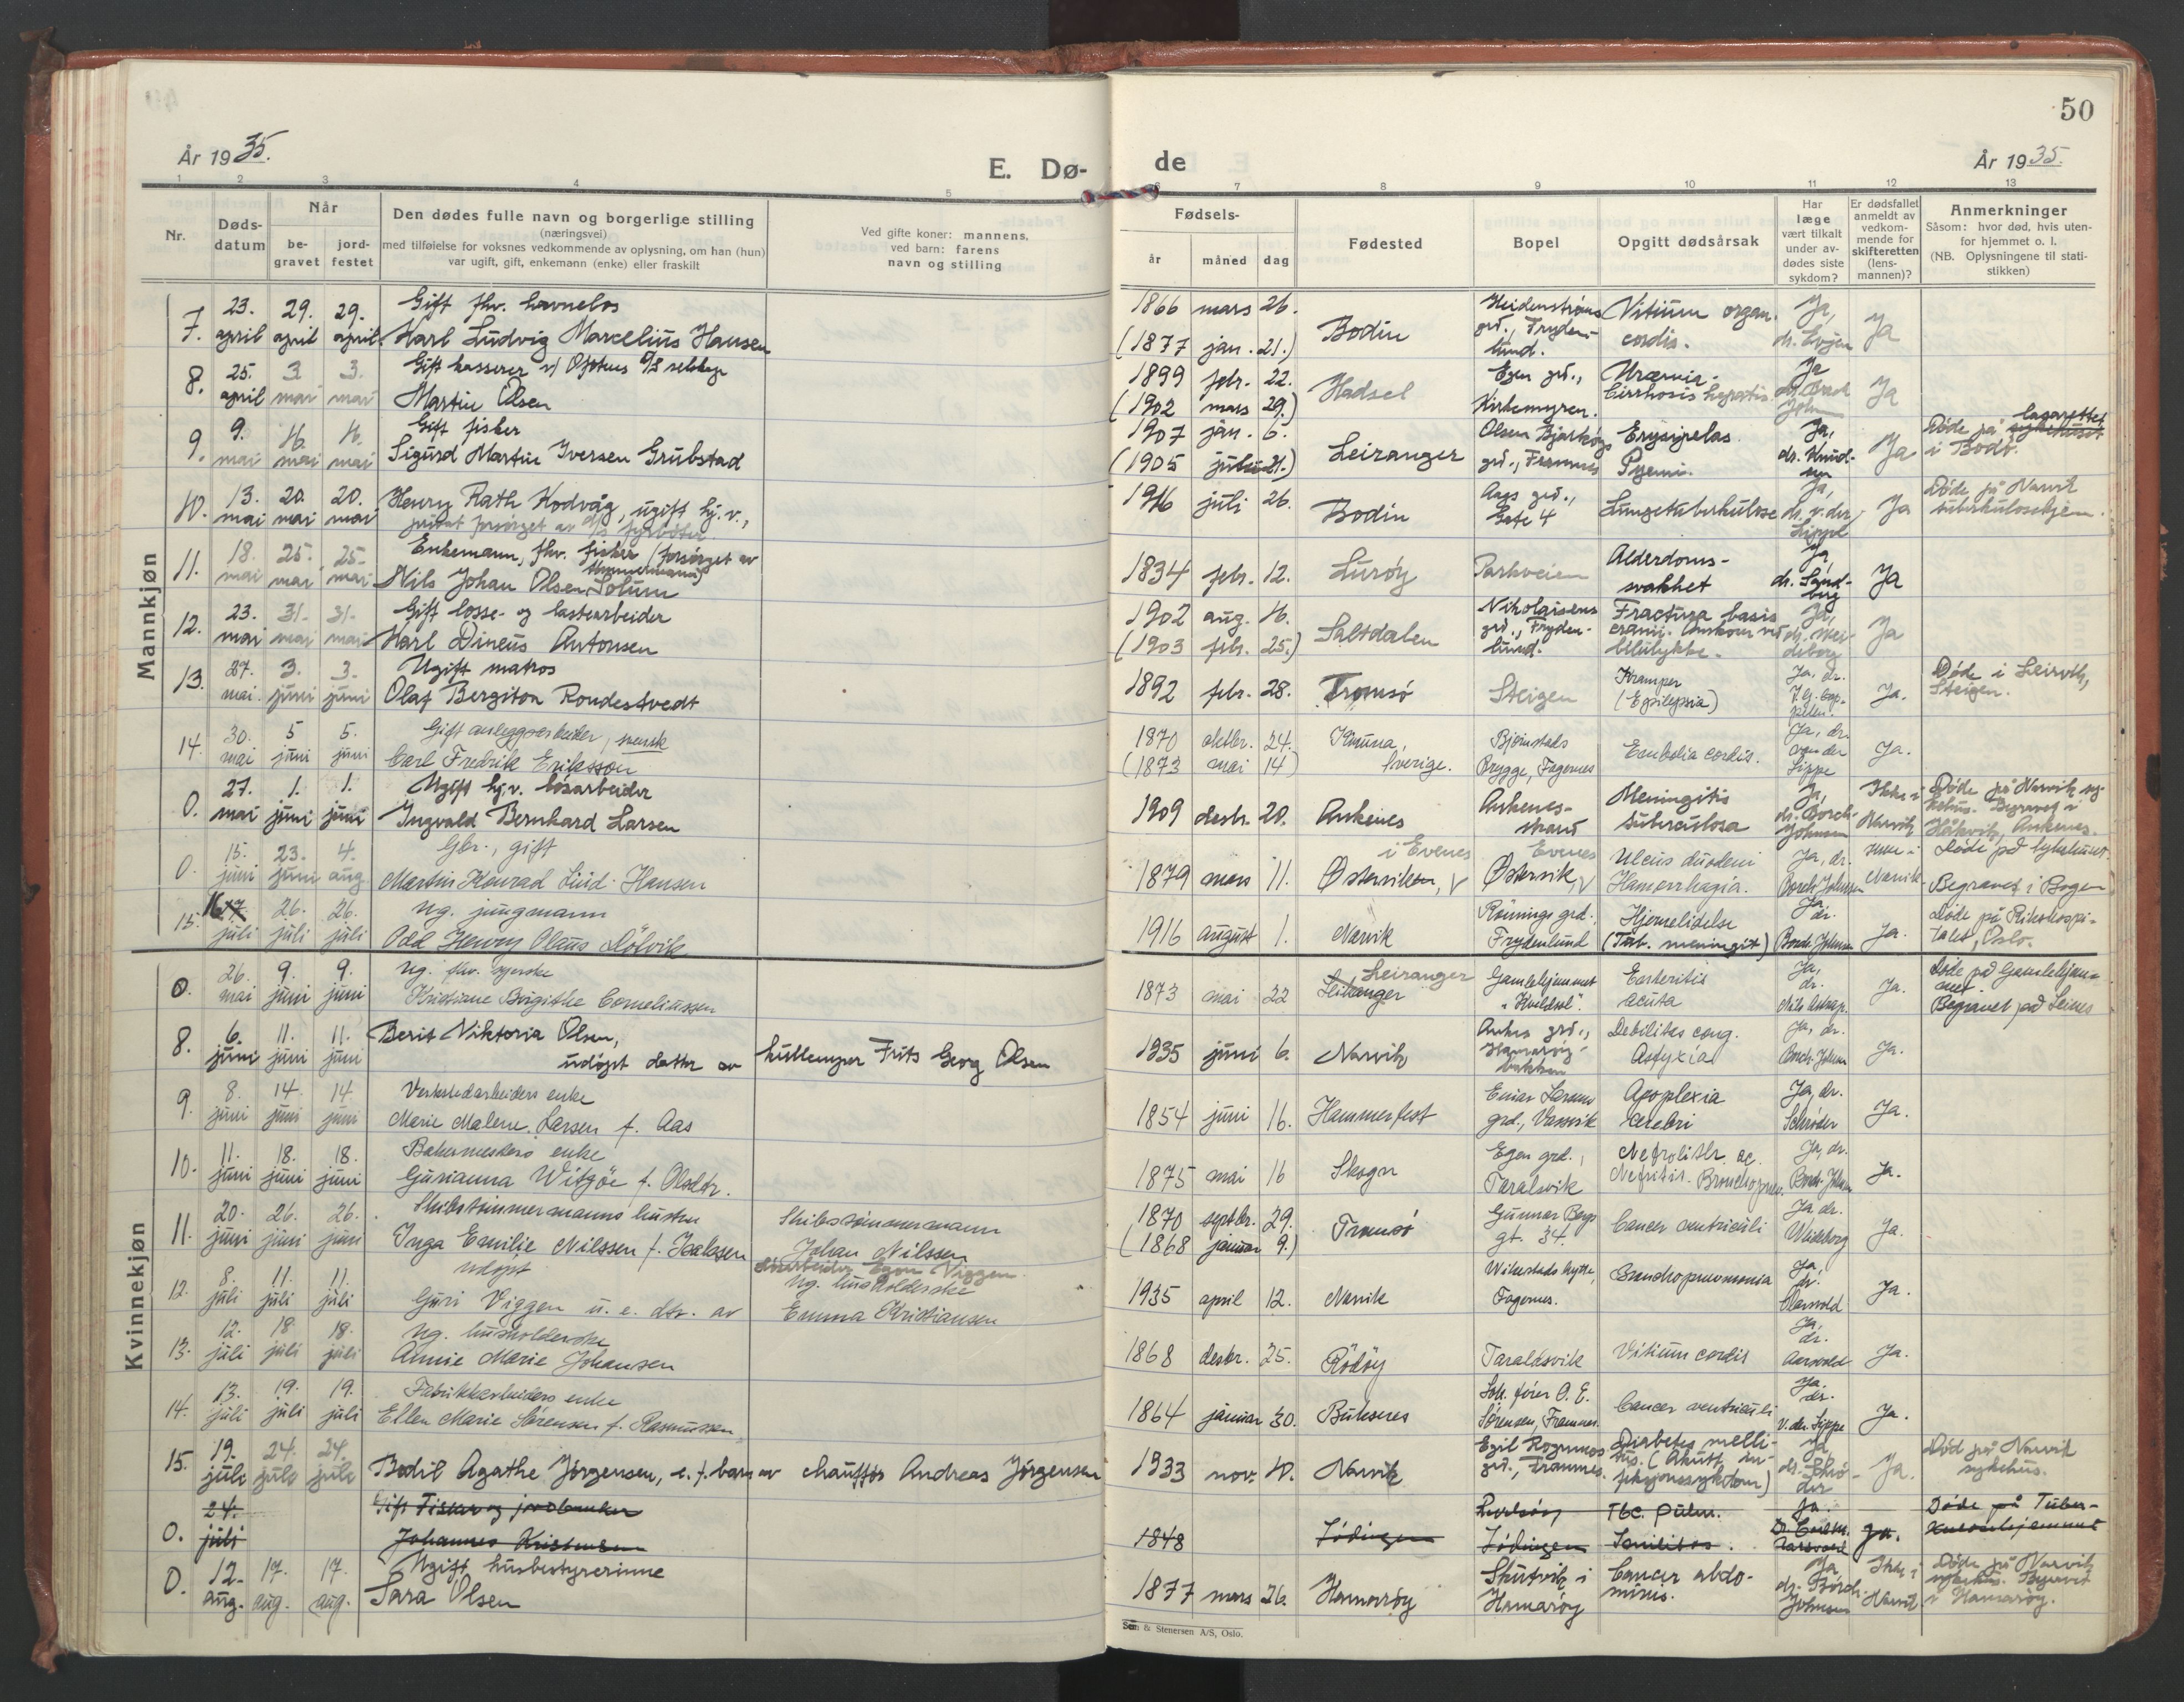 50
År 1935.
E. Dø-
de
År 1935.
1 2 3 4 5 6 7 8 9 10 11 12 13
Nr.
Døds-
datum
Når
be-
gravet
jord-
festet
Den dødes fulle navn og borgerlige stilling
(næringsvei)
med tilføielse for voksnes vedkommende av oplysning, om han (hun)
var ugift, gift, enkemann (enke) eller fraskilt
Ved gifte koner: mannens,
ved barn: farens
navn og stilling
Fødsels-
år måned dag
Fødested
Bopel
Opgitt dødsårsak
Har
læge
vært tilkalt
under av-
dødes siste
sykdom?
Er dødsfallet
anmeldt av
vedkom-
mende for
skifteretten
(lens-
mannen)?
Anmerkninger
Såsom: hvor død, hvis uten-
for hjemmet o. l.
(NB. Oplysningene til stati-
stikken)
Mannkjøn
7. 23. april 29. april 29. april Gift fhv. havnelos
Karl Ludvig Marcelius Hansen
1866 mars 26. (1877 jan. 21.) Bodin Heidenstrøms grd., Frydenlund. Vitium organ. cordis. Ja, dr. Evjen Ja
8. 25. april 3 mai 3. mai Gift kasserer
Martin Olsen
1899 febr. 22. (1902 mars 29.) Hadsel Egen grd., Kirkemyren. Uræmia. Cirrhosis hepatis Ja Ja
9. 9. mai 16. mai 16. mai Gift fisker
Sigurd Martin Iversen Grubstad
1907 jan. 6. (1905 21.) Leiranger Olsen Bjarkøys grd., Framnes Erysipelas. Pyemi. Ja, dr. Knudsen Ja Døde på lasarettet sykehuset i Bodø.
10. 13. mai 20. mai 20. mai Henry Rath Kodvåg, ugift hj. v.,
privat forsørget av fyrbøter.
1916 juli 26. Bodin Aags grd., Gate 4 Lungetuberkulose Ja, dr. v. der Lippe Ja Døde på Narvik tuberkulosehjem.
11. 18. mai 25. mai 25. mai Enkemann, fhv. fisker (forsørget av
Nils Johan Olsen Solum
1834 febr. 12. Lurøy Parkveien Alderdomssvakhet Ja, dr. Sandberg Ja
12. 23. mai 31. mai 31. mai Gift losse- og lastearbeider
Karl Dineus Antonsen
1902 aug. 16. (1903 febr. 25.) Saltdalen Nikolaisens grd., Frydenlund. Fractura basis cranii. Omkom ved bilulykke. Ja, Ja
13. 27. mai 3. juni 3. juni Ugift matros
Olaf Bergiton Rondestvedt
1892 febr. 28. Tromsø Steigen Kramper (Epilepsia) Ja, dr. Ja. Døde i Leirvik, Steigen.
14. 30. mai 5 juni 5. juni Gift anleggsarbeider, svensk
Carl Fredrik Eriksson
1870 oktbr. 24. (1873 mai 14) Kiruna, Sverige. Bjørnstads Brygge, Fagernes Embolia cordis. Ja, dr. von der Lippe Ja.
0. 27. mai 1. juni 1. juni Ugift hj.v. løsarbeider
Ingvald Bernhard Larsen
1909 desbr. 20. Ankenes Ankenesstrand Meningitis tuberculosa Ja, dr. Borch-Johnsen Ikke i Narvik Døde på Narvik sykehus. Begravet i Håkvik, Ankenes.
0. 15. juni 23. juni 4. aug. Gbr., gift
Martin Konrad Lind-Hansen
1879 mars 11. i Evenes Østervikn, V Evenes Østervik, V Ulcus duodeni Hæmorrhagia. Ja, dr. Borch Johnsen Ikke i Narvik. Døde på Sykehuset. Begravet i Bogen
15. 16 17 juli 26. juli 26. juli Ug. jungmann
Odd Henry Olaus Dølvik
1916 august 1. Narvik Rønnings grd. Frydenlund Hjernelidelse (Tub. meningit) Ja dr. Borch Johnsen Ja. Døde på Rikshospitalet, Oslo.
Kvinnekjøn
0. 26. mai 9. juni 9. juni Ug. fhv. syerske
Kristiane Birgithe Corneliussen
1873 mai 22 Leiranger Gamlehjemmet "Kveldsol". Enteritis acuta Ja, dr. Ja. Døde på Gamlehjemmet. Begravet på Leines
8. 6. juni 11. juni 11. juni Berit Viktoria Olsen,
udøpt datter av kullemper Frits Georg Olsen
1935 juni 6. Narvik Ankes grd., Hamarøybakken Debilitas cong. Asfyxia Ja, dr. Borch Johnsen Ja.
9. 8. juni 14. juni 14. juni Verkstedarbeiders enke
Marie Malene Larsen f. Aas
1854 juni 16. Hammerfest Einar Larsens grd., Vassvik Apoplexia cerebri Ja, dr. Schrøder Ja.
10. 11. juni 18. juni 18. juni Bakermesters enke
Gurianna Witsøe f. Olsdtr.
1875 mai 16 Skogn Egen grd., Taralsvik Nefrolith. ac. Nefritis. Bronchopneu. Ja, dr. Borch Johnsen Ja.
11. 20. juni 26. juni 26. juni Skibstømmermanns hustru
Inga Emilie Nilssen f. Isaksen Skibstømmermann Johan Nilssen
1870 septbr. 29. (1868 januar 9.) Tromsø Gunnar Bergs gt. 34. Cancer ventriculi Ja dr. Wideborg Ja.
12. 8. juli 11. juli 11. juli udøpt
Guri Viggen u. e. dtr. av Egon Viggen. ug. husholderske Emma Kristiansen
1935 april 12. Narvik Wikestads hytte, Fagernes. Bronchopneumonia Ja, dr. Aarsvold Ja.
13. 12. juli 18 juli 18. juli Ug. husholderske
Annie Marie Johansen
1868 desbr. 25. Rödöy Taraldsvik Vitium cordis Ja, dr. Aarsvold Ja.
14. 13. juli 19. juli 19. juli Fabrikkarbeiders enke
Ellen Marie Sørensen f. Rasmussen
1864 januar 30. Buksnes O. E. Sørensen, Framnes. Cancer ventriculi Ja. dr. V. der Lippe Ja.
15. 19. juli 24. juli 24. juli Bodil Agathe Jørgensen, e. f. barn av chauffør Andreas Jørgensen
1933 nov. 10. Narvik Egil Rognmos grd., Framnes. Diabetes mellitus. (Akutt infeksjonssykdom) Ja, dr. Schrøder Ja. Død på Narvik sykehus.
0. 24. juli Gift Fisker og jordbruker
Johannes Kristensen
1848 Lødingen Lødingen Tbc. pulm. Senilitas. Ja. Ja. Døde på Tuberkulosehjemmet
0. 12. aug. 17. aug. 17. aug. Ugift husbestyrerinne
Sara Olsen
1877 mars 26. Hamarøy Skutvik i Hamarøy Cancer abdominis. Ja dr. Borch-Johnsen Ikke i Narvik. Døde på Narvik sykehus. Begravet i Hamarøy.
Sem & Stenersen A/S, Oslo.